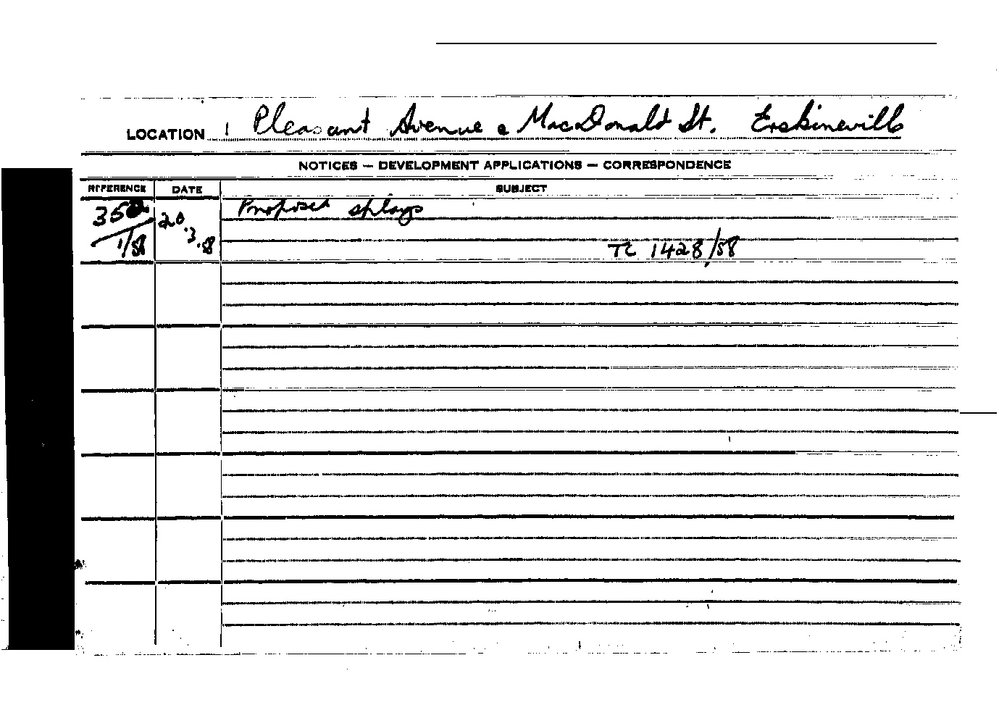 LOCATION Pleasant Avenue & MacDonald St. Erskineville
NOTICES — DEVELOPMENT APPLICATIONS — CORRESPONDENCE
REFERENCE DATE SUBJECT
20.3.58 Proposed splays
1/58 TC 1428/58